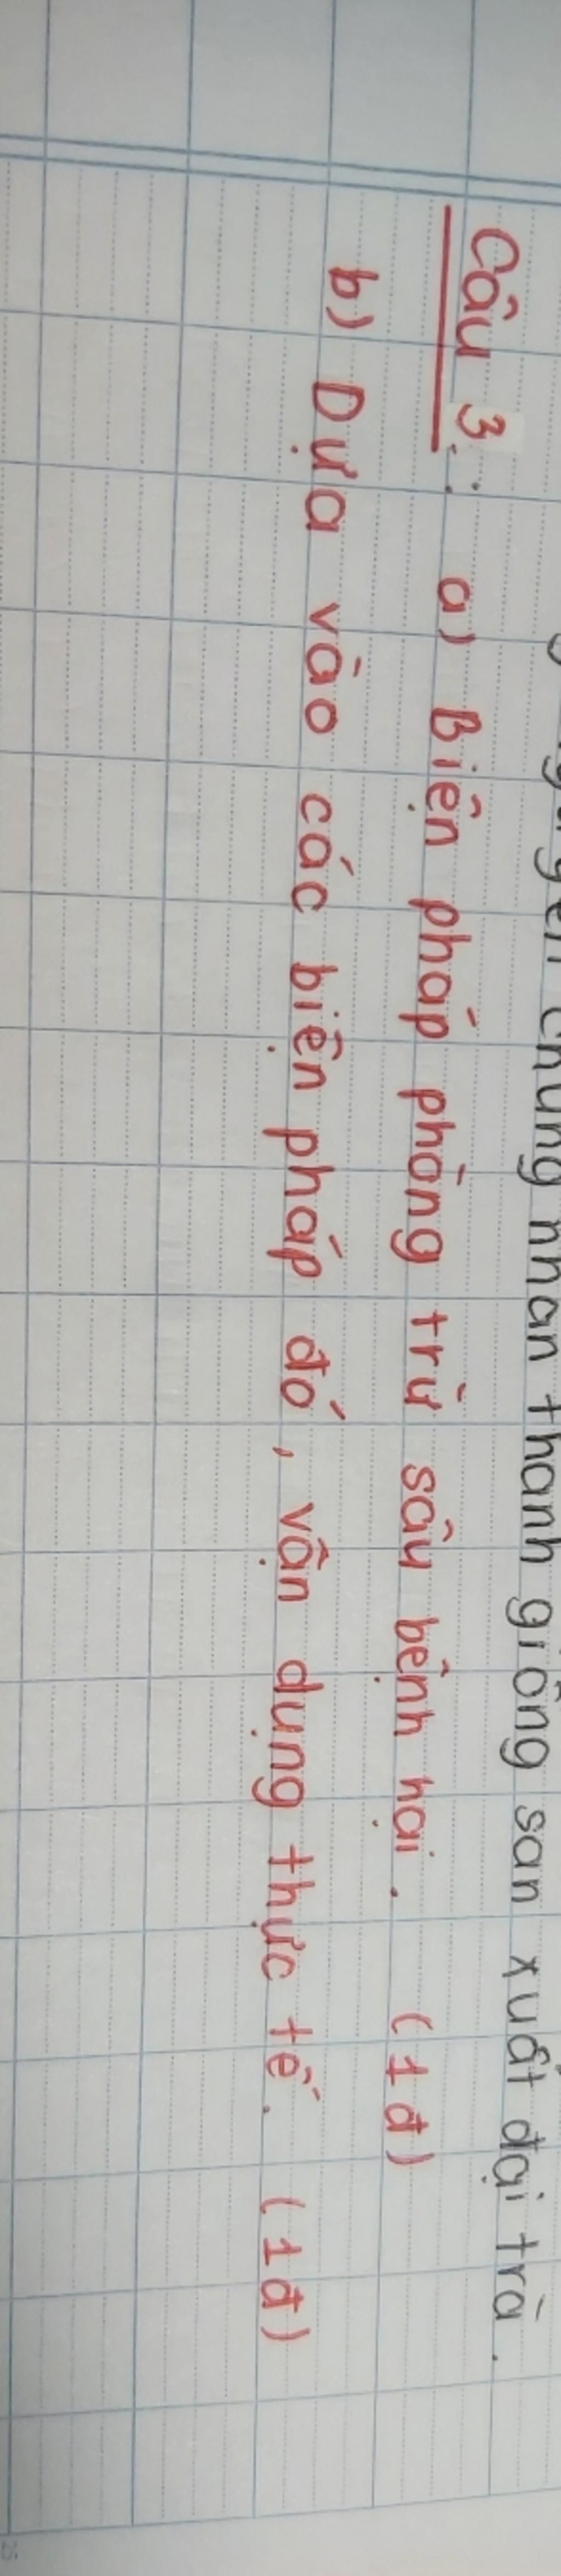 chung nhân thành giống sản xuất đại trà.
Câu 3: a) Biện pháp phòng trừ sâu bệnh hại. (1đ)
b) Dựa vào các biện pháp đó, vận dụng thực tế. (1đ)